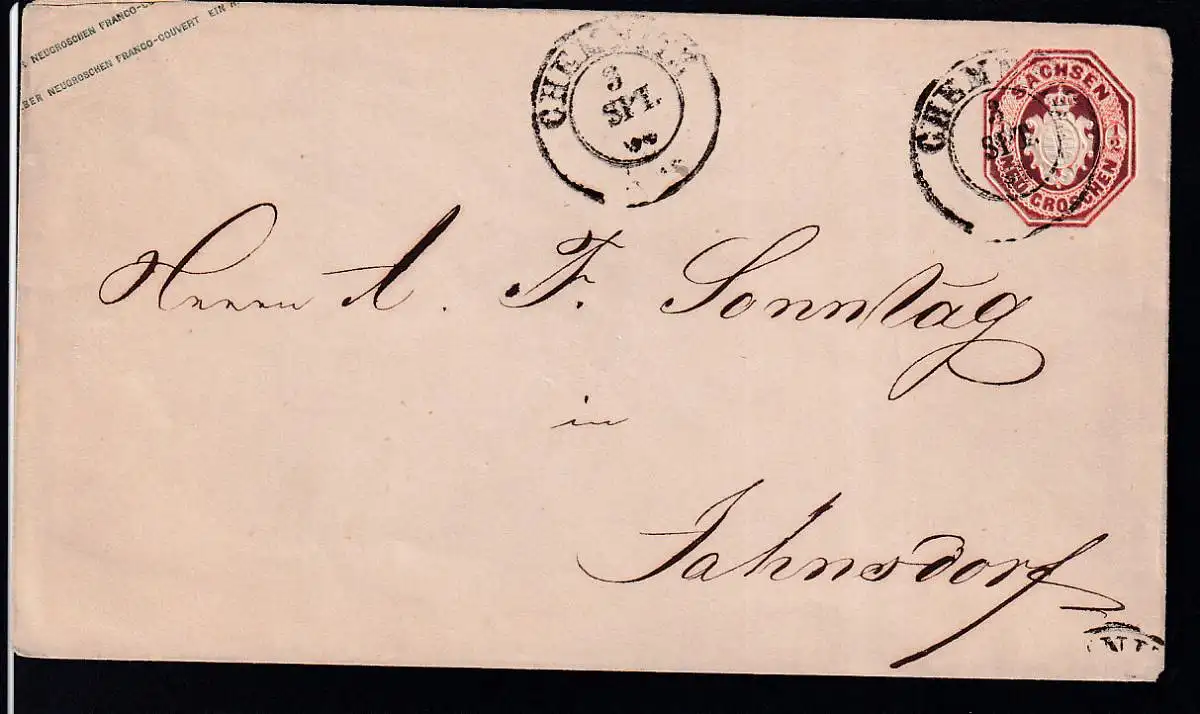 NEUGROSCHEN FRANCO-CO
BER NEUGROSCHEN FRANCO-COUVERT EIN
CHEMNITZ
3
SPT.
CHEMN
3
SPT.
SACHSEN
1/2
NEUGROSCHEN
Herrn A. F. Sonntag
in
Jahnsdorf